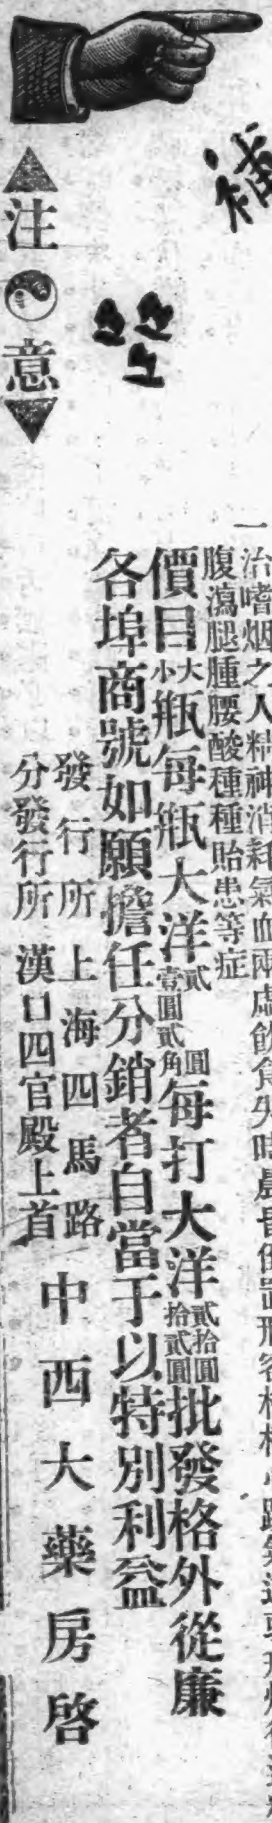 補
一治嗜烟之人精神消耗氣血兩虛飲食失
腹瀉腿腫腰酸種種貽患等症
價目大小瓶每瓶大洋貳圓壹圓貳角每打大洋貳拾圓拾貳圓批發格外從廉
各埠商號如願擔任分銷者自當于以特別利益
發行所上海四馬路
分發行所漢口四官殿上首
中西大藥房啓
注意